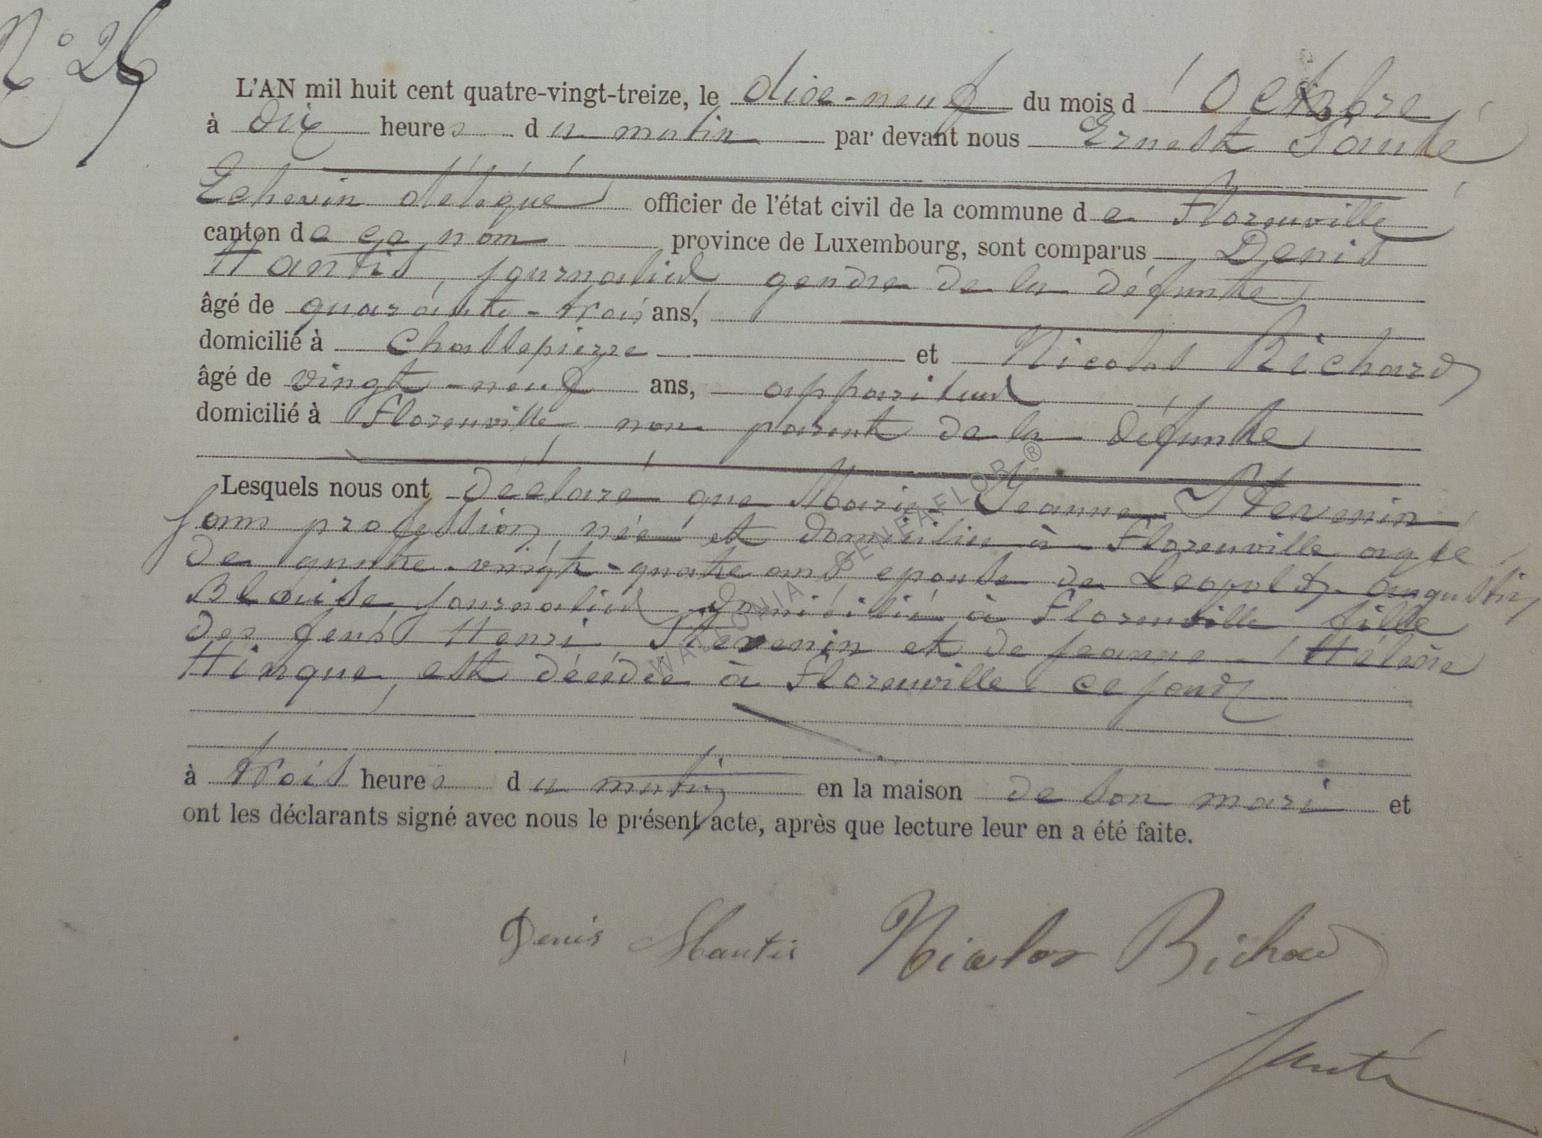 N° 26
L'AN mil huit cent quatre-vingt-treize, le dixe-neuf du mois d'Octobre
à dix heures du matin par devant nous Ernest Santé
Echevin délégué officier de l'état civil de la commune de Florenville
canton de ce nom province de Luxembourg, sont comparus Denis
Hantis, journalier gendre de la défunte
âgé de quarante-trois ans,
domicilié à Chassepierre et Nicolas Richard
âgé de vingt-neuf ans, appariteur
domicilié à Florenville non parent de la défunte
Lesquels nous ont déclaré que Marie-Jeanne Stevenin
sans profession, née et domiciliée à Florenville agée
de quatre-vingt-quatre ans épouse de Léopold-Augustin
Blaise journalier domicilié à Florenville fille
des feus Henri Stevenin et de Jeanne-Hélène
Hinque, est décédée à Florenville ce jour
à trois heures du matin en la maison de son mari et
ont les déclarants signé avec nous le présent acte, après que lecture leur en a été faite.
Denis Hantis Nicolas Richard
Santé
WALLONIA GENEAFLOR ®